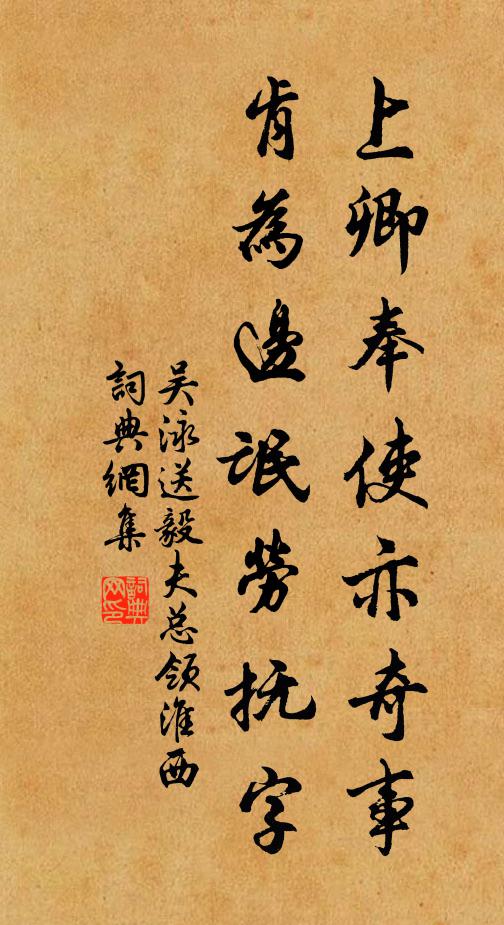 上卿奉使亦奇事
肯為邊氓勞抚字
吴泳送毅夫总领淮西
詞典網集
詞典网印